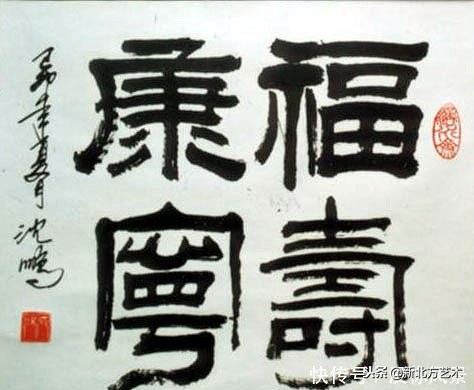 福壽
康寧
夏月 沈鵬
快传号
头条 @新北方艺术